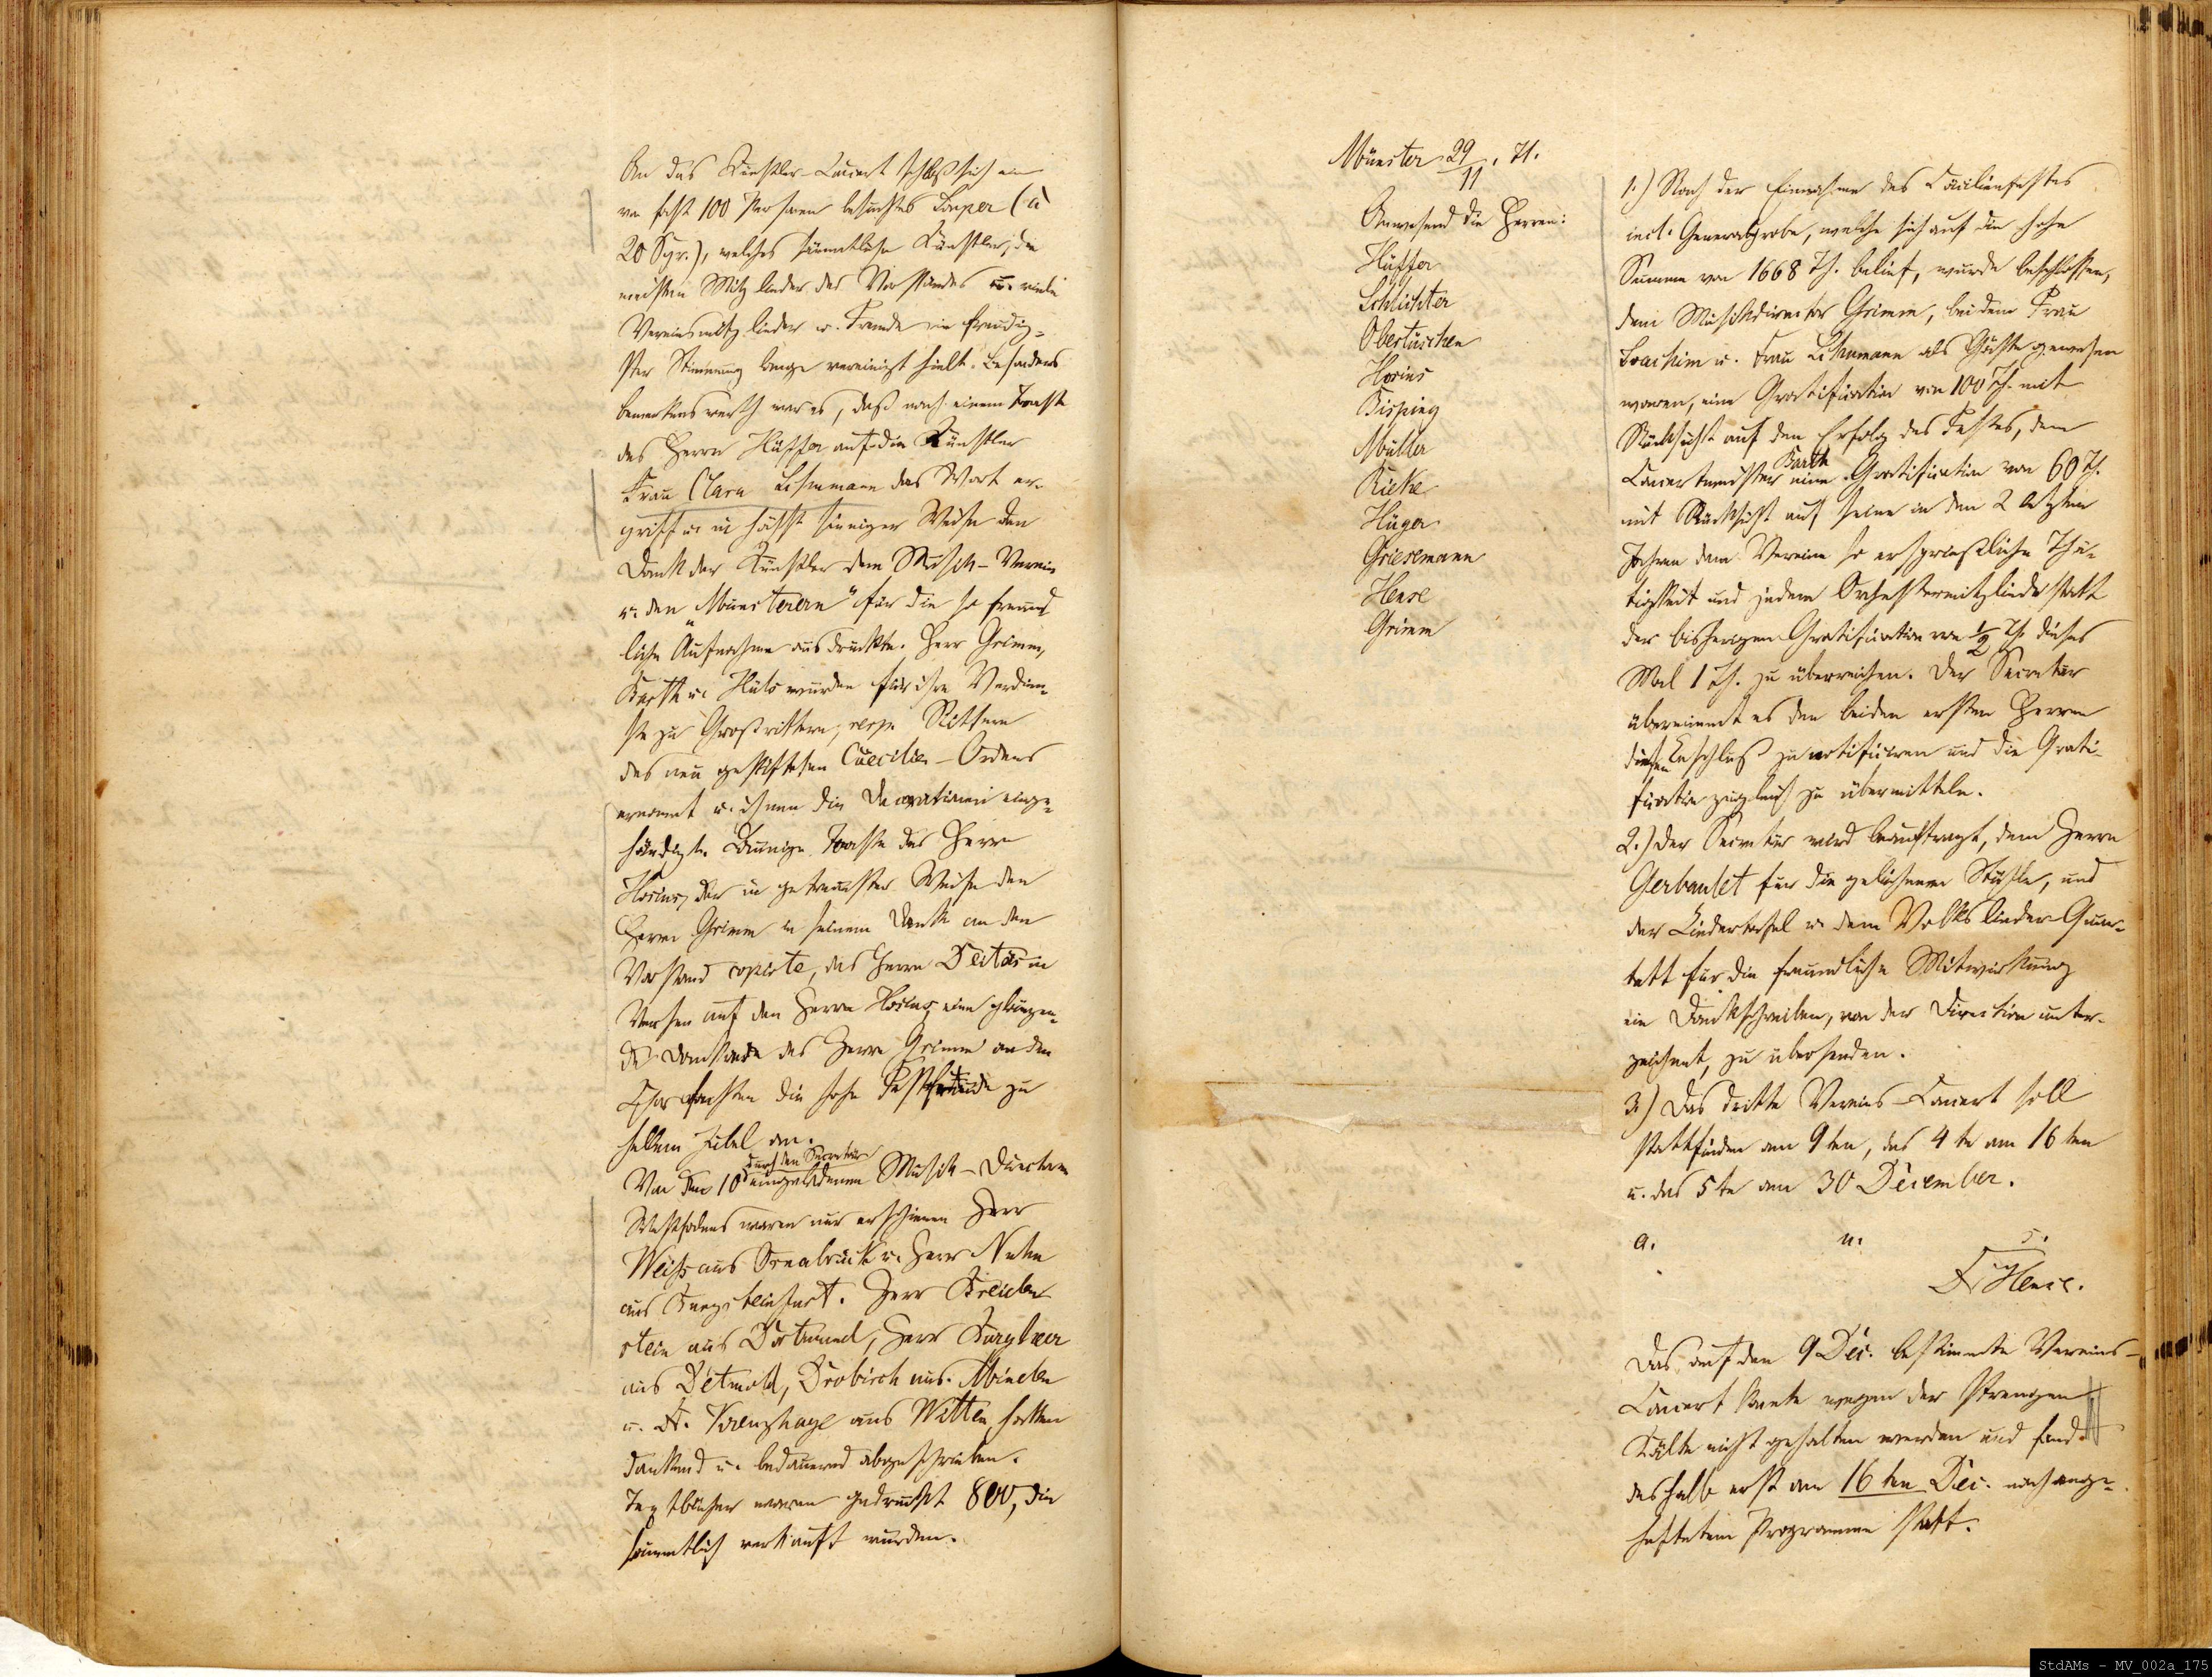 An das Künstler-Concert schloß sich ein
von fast 100 Personen besuchtes Souper (a
20 Sgr.), welches sämmtliche Künstler, die
meisten Mitglieder des Vorstandes u. viele
Vereinsmitglieder u. Freunde in freudig-
ster Stimmung lange vereinigt hielt. Besonders
bemerkenswerth war es, daß nach einem Toaste
des Herrn Hüffer auf die Künstler
Frau Clara Schumann das Wort er-
griff u. in höchst sinniger Weise den
Dank der Künstler dem Musik-Verein
u. den „Münsterern" für die so freund
liche Aufnahme ausdrückte. Herr Grimm,
Barth u. Hüls wurden für ihre Verdien-
ste zu Großrittern, resp. Rittern
des neu gestifteten Caecilien-Ordens
ernannt u. ihnen die Decorationen einge-
händigt. Launige Toaste des Herrn
Hosius, der in getreuester Weise den
Herrn Grimm in seinem Dank an den
Vorstand copirte, des Herrn Deiters in
Versen auf den Herrn Hosius, eine glänzen-
de Dankrede des Herrn Grimm an den
Chor fachten die hohe Festfreude zu
hellem Jubel an.
durch den Secretär
Von den 10 eingeladenen Musik-Directoren
Westfalens waren nur erschienen Herr
Weiss aus Osnabrück u. Herr Nuhn
aus Burgsteinfurt. Herr Breiden
stein aus Dortmund, Herr Bargheer
aus Detmold, Drobisch aus Minden
u. A. Krenzhage aus Witten hatten
dankend u. bedauernd abgeschrieben.
Textbücher waren gedruckt 800, die
sämmtlich verkauft wurden.
Münster 29/11. 71.
Anwesend die Herren:
Hüffer
Schlichter
Obertüschen
Hosius
Bisping
Müller
Rieke
Hüger
Griesemann
Hense
Grimm
1.) Nach der Einnahme des Cäcilienfestes
incl. Generalprobe, welche sich auf die hohe
Summe von 1668 Th. belief, wurde beschlossen,
dem Musikdirector Grimm, bei dem Frau
Joachim u. Frau Schumann als Gäste gewesen
waren, eine Gratification von 100 Th. mit
Rücksicht auf den Erfolg des Festes, dem
Concertmeister Barth eine Gratification von 60 Th.
mit Rücksicht auf seine in den 2 letzten
Jahren dem Vereine so ersprießliche Thä-
tigkeit und jedem Orchestermitgliede statt
der bisherigen Gratification von ½ Th. dieses
Mal 1 Th. zu überreichen. Der Secretär
übernimmt es den beiden ersten Herren
diesen Beschluß zu notificiren und die Grati-
fication zugleich zu übermitteln.
2.) Der Secretär wird beauftragt, dem Herrn
Gerbaulet für die geliehenen Stühle, und
der Liedertafel u. dem Volkslieder-Quar-
tett für die freundliche Mitwirkung
ein Dankschreiben, von der Direction unter-
zeichnet, zu übersenden.
3.) Das dritte Vereins-Concert soll
stattfinden am 9ten, das 4te am 16ten
u. das 5te am 30 December.
a. u. s.
Dr Hense.
Das auf den 9 Dec. bestimmte Vereins-
Concert konnte wegen der strengen
Kälte nicht gehalten werden und fand
deshalb erst am 16ten Dec. nach ange-
heftetem Programme statt.
StdAMs - MV_002a_175